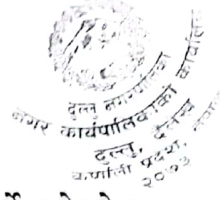 दुल्लु नगरपालिका
नगर कार्यपालिकाको कार्यालय
दुल्लु, दैलेख
कर्णाली प्रदेश, नेपाल
२०७३